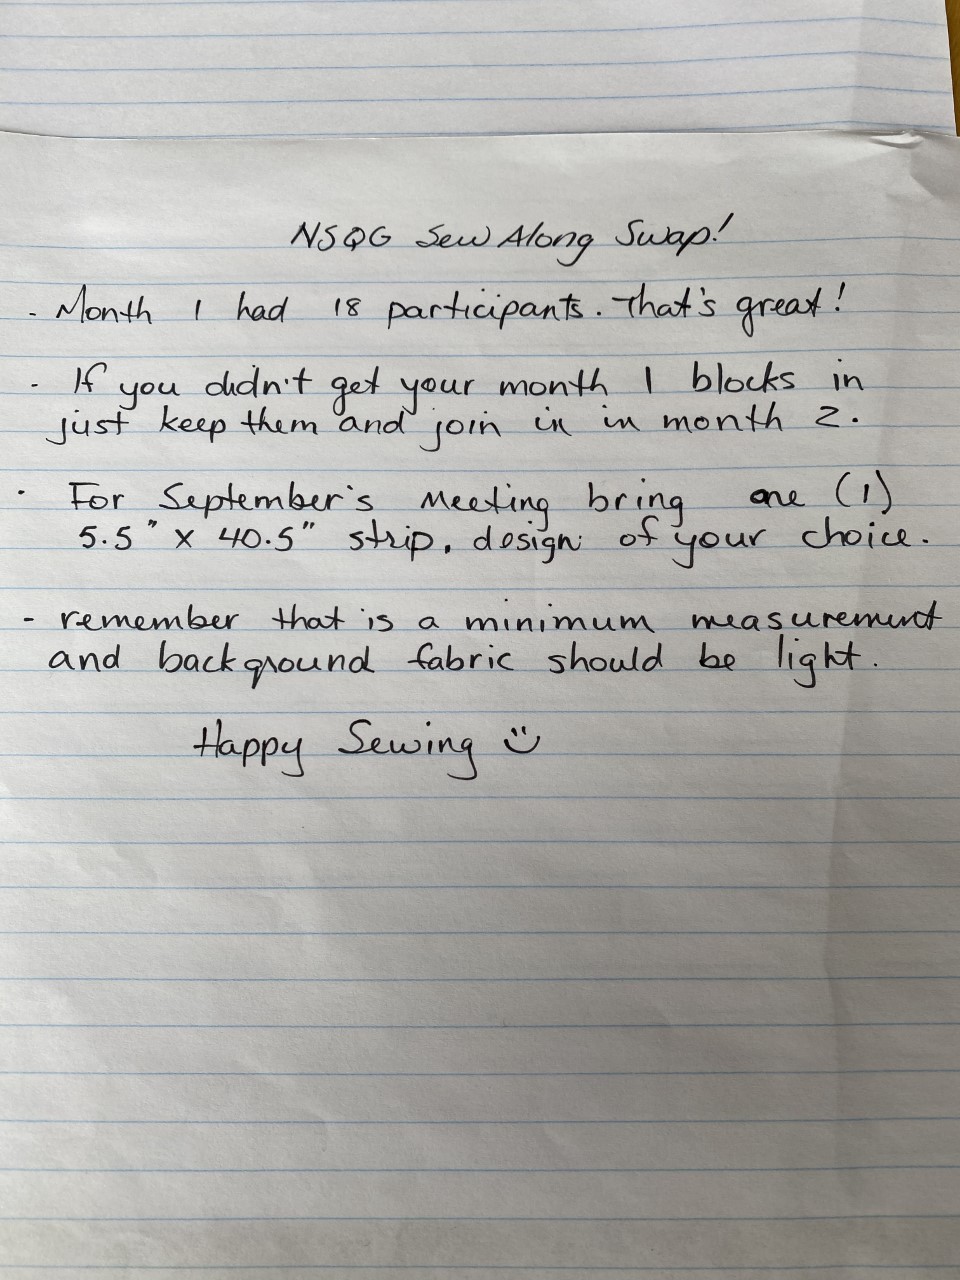 NSQG Sew Along Swap!
- Month 1 had 18 participants. That's great!
- If you didn't get your month 1 blocks in
just keep them and join in in month 2.
· For September's Meeting bring one (1)
5.5" x 40.5" strip, design of your choice.
- remember that is a minimum measurement
and background fabric should be light.
Happy Sewing ☺